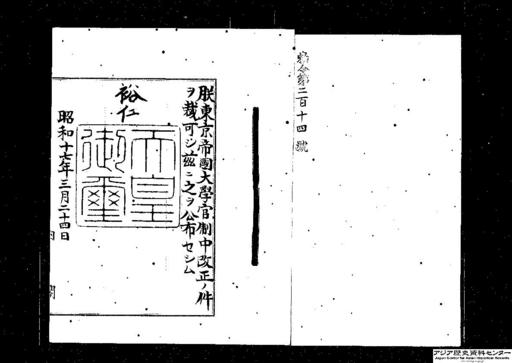 勅令第二百十四號
朕東京帝國大學官制中改正ノ件
ヲ裁可シ茲ニ之ヲ公布セシム
裕仁
天皇
御璽
昭和十七年三月二十四日
内閣
アジア歴史資料センター
Japan Center for Asian Historical Records